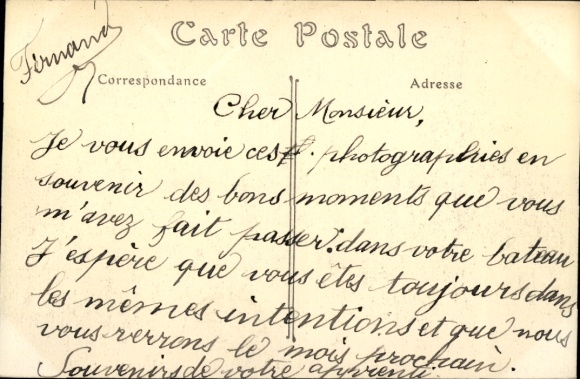 Carte Postale
Fernand
Correspondance
Adresse
Cher Monsieur,
Je vous envoie ces photographies en
souvenir des bons moments que vous
m'avez fait passer dans votre bateau
J'espère que vous êtes toujours dans
les mêmes intentions et que nous
vous verrons le mois prochain.
Souvenirs de votre apprenti.